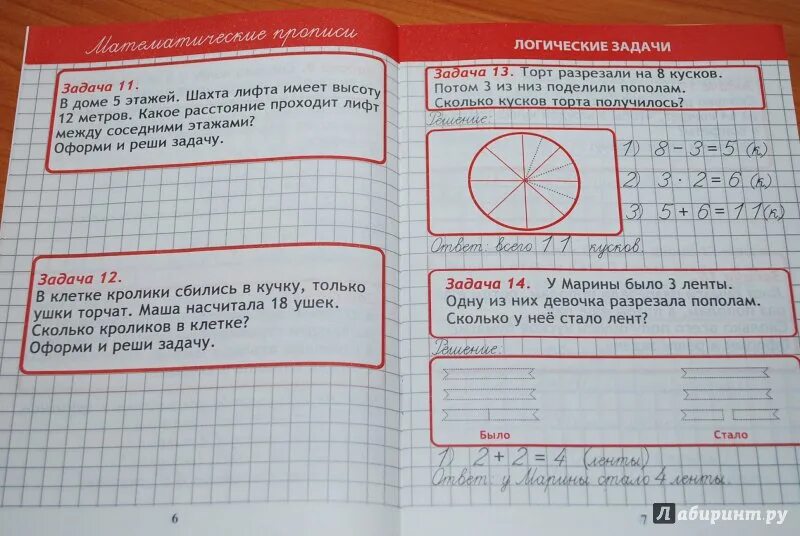 Математические прописи
Задача 11.
В доме 5 этажей. Шахта лифта имеет высоту
12 метров. Какое расстояние проходит лифт
между соседними этажами?
Оформи и реши задачу.
Задача 12.
В клетке кролики сбились в кучку, только
ушки торчат. Маша насчитала 18 ушек.
Сколько кроликов в клетке?
Оформи и реши задачу.
6
ЛОГИЧЕСКИЕ ЗАДАЧИ
Задача 13. Торт разрезали на 8 кусков.
Потом 3 из низ поделили пополам.
Сколько кусков торта получилось?
Решение:
1) 8 − 3 = 5 (к.)
2) 3 · 2 = 6 (к.)
3) 5 + 6 = 11 (к.)
Ответ: всего 11 кусков.
Задача 14. У Марины было 3 ленты.
Одну из них девочка разрезала пополам.
Сколько у неё стало лент?
Решение:
Было Стало
1) 2 + 2 = 4 (ленты)
Ответ: у Марины стало 4 ленты.
7
Лабиринт.ру